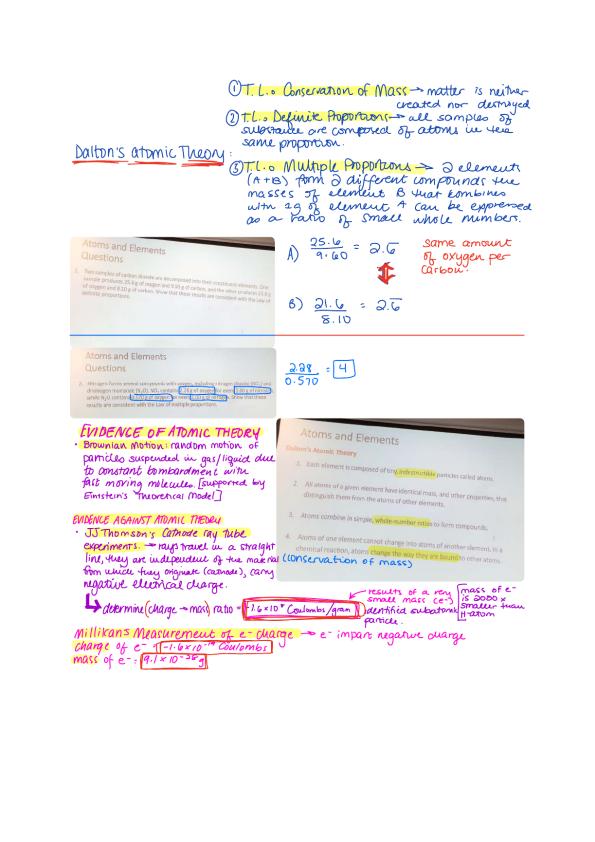 ① T.L.o Conservation of Mass → matter is neither
created nor destroyed
② T.L.o Definite Proportions → all samples of
substance are composed of atoms in the
same proportion.
Dalton's atomic Theory:
③ T.L.o Multiple Proportions → 2 elements
(A+B) form 2 different compounds the
masses of element B that combines
with 1g of element A can be expressed
as a ratio of small whole numbers.
Atoms and Elements
Questions
1. Two samples of carbon dioxide are decomposed into their constituent elements. One
sample produces 25.6 g of oxygen and 9.60 g of carbon, and the other produces 21.6 g
of oxygen and 8.10 g of carbon. Show that these results are consistent with the Law of
definite proportions.
A) 25.6 / 9.60 = 2.6
same amount
of oxygen per
carbon.
B) 21.6 / 8.10 = 2.6
Atoms and Elements
Questions
2. Nitrogen forms several compounds with oxygen, including nitrogen dioxide (NO₂) and
dinitrogen monoxide (N₂O). NO₂ contains 2.28 g of oxygen for every 1.00 g of nitrogen
while N₂O contains 0.570 g of oxygen for every 1.00 g of nitrogen. Show that these
results are consistent with the Law of multiple proportions.
2.28 / 0.570 = 4
EVIDENCE OF ATOMIC THEORY
• Brownian Motion: random motion of
particles suspended in gas/liquid due
to constant bombardment with
fast moving molecules. [supported by
Einstein's Theoretical Model]
Atoms and Elements
Dalton's Atomic Theory
1. Each element is composed of tiny, indestructible particles called atoms.
2. All atoms of a given element have identical mass, and other properties, that
distinguish them from the atoms of other elements.
3. Atoms combine in simple, whole-number ratios to form compounds.
4. Atoms of one element cannot change into atoms of another element. In a
chemical reaction, atoms change the way they are bound to other atoms.
(conservation of mass)
EVIDENCE AGAINST ATOMIC THEORY
• JJ Thomson's Cathode ray tube
experiments. → rays travel in a straight
line, they are independent of the material
from which they originate (cathode), carry
negative electrical charge.
↳ determine (charge → mass) ratio = -1.6×10⁸ Coulombs/gram
results of a very
small mass (e-)
identified subatomic
particle.
mass of e-
is 2000 x
smaller than
H-atom
Millikans Measurement of e- charge → e- impart negative charge
charge of e- = -1.6×10⁻¹⁹ Coulombs
mass of e- = 9.1×10⁻²⁸ g